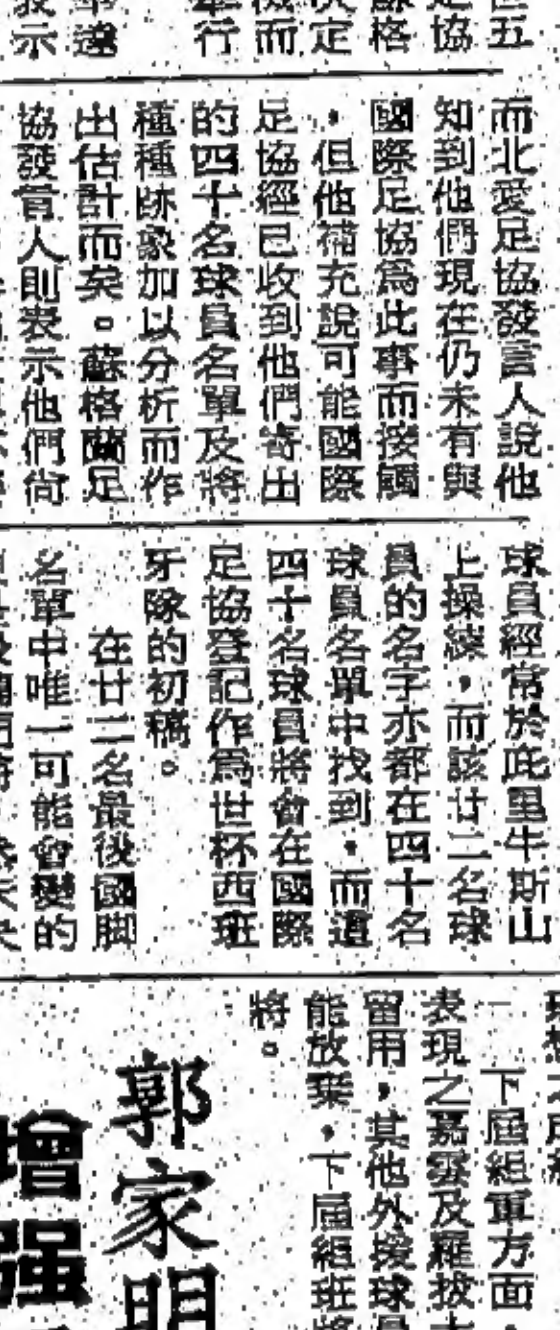 世五
足協
蘇格
決定
機而
舉行
表示
而北愛足協發言人說他
知到他們現在仍未有與
國際足協爲此事而接觸
，但他補充說可能國際
足協經已收到他們寄出
的四十名球員名單及將
種種跡象加以分析而作
出估計而矣。蘇格蘭足
協發言人則表示他們尙
球員經常於庇里牛斯山
上操練，而該廿二名球
員的名字亦都在四十名
球員名單中找到，而這
四十名球員將會在國際
足協登記作爲世杯西班
牙隊的初稿。
在廿二名最後國脚
名單中唯一可能會變的
下屆組軍方面，
表現之嘉雲及羅拔
留用，其他外援球員
能放棄，下屆組班將
將。
郭家明
增强